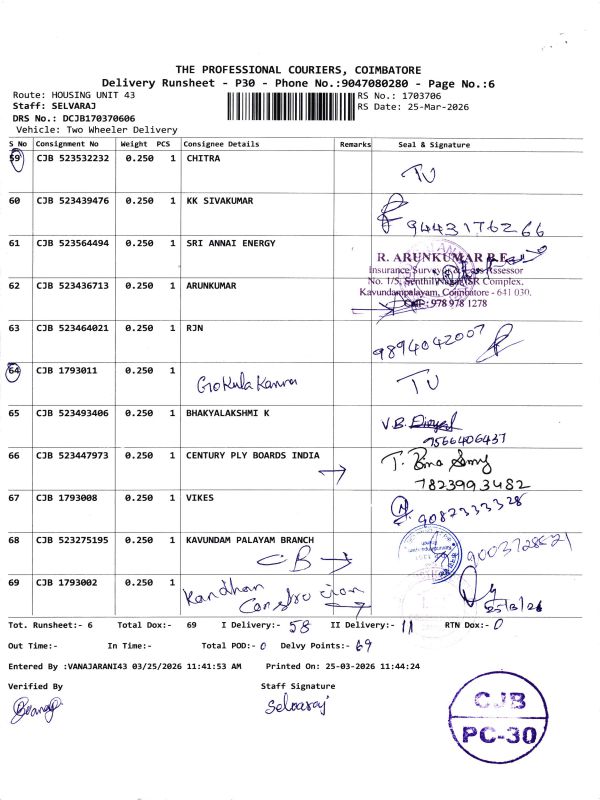 THE PROFESSIONAL COURIERS, COIMBATORE
Delivery Runsheet - P30 - Phone No.:9047080280 - Page No.:6
Route: HOUSING UNIT 43
RS No.: 1703706
Staff: SELVARAJ
RS Date: 25-Mar-2026
DRS No.: DCJB170370606
Vehicle: Two Wheeler Delivery
S No Consignment No Weight PCS Consignee Details Remarks Seal & Signature
59 CJB 523532232 0.250 1 CHITRA TU
60 CJB 523439476 0.250 1 KK SIVAKUMAR 9443176266
61 CJB 523564494 0.250 1 SRI ANNAI ENERGY
R. ARUNKUMAR B.E.,
Insurance Surveyor & Loss Assessor
No. 1/5, Senthil Nagar, SR Complex,
62 CJB 523436713 0.250 1 ARUNKUMAR
Kavundampalayam, Coimbatore - 641 030.
Cell: 978 978 1278
63 CJB 523464021 0.250 1 RJN 9894042007
64 CJB 1793011 0.250 1 Gokula Kannan TU
65 CJB 523493406 0.250 1 BHAKYALAKSHMI K V.B.
7566406437
66 CJB 523447973 0.250 1 CENTURY PLY BOARDS INDIA T.
7823993482
67 CJB 1793008 0.250 1 VIKES 9087333328
68 CJB 523275195 0.250 1 KAVUNDAM PALAYAM BRANCH
CB
69 CJB 1793002 0.250 1 Kandhan
Constrocion 25/3/26
Tot. Runsheet:- 6 Total Dox:- 69 I Delivery:- 58 II Delivery:- 11 RTN Dox:- 0
Out Time:- In Time:- Total POD:- 0 Delvy Points:- 69
Entered By :VANAJARANI43 03/25/2026 11:41:53 AM Printed On: 25-03-2026 11:44:24
Verified By Staff Signature
Selvaraj
CJB
PC-30